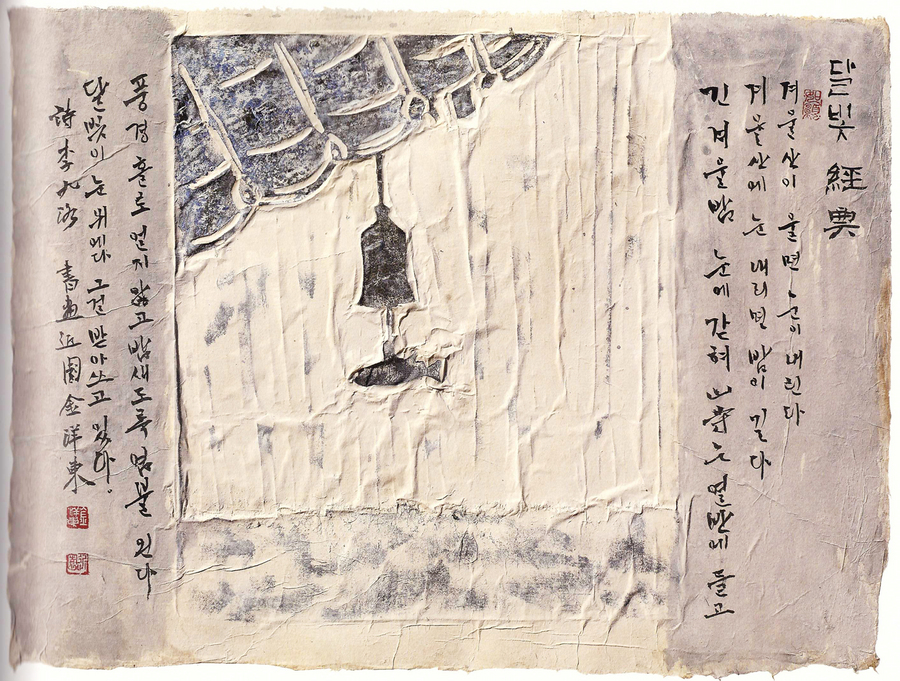 달빛 經典
겨울산이 울면 눈이 내린다
겨울산에 눈 내리면 밤이 길다
긴 겨울밤 눈에 갇혀 山寺는 열반에 들고
풍경 홀로 얼지 않고 밤새도록 염불 왼다
달빛이 눈 위에다 그걸 받아쓰고 있다.
詩 李九洛 書畵 近園 金洋東